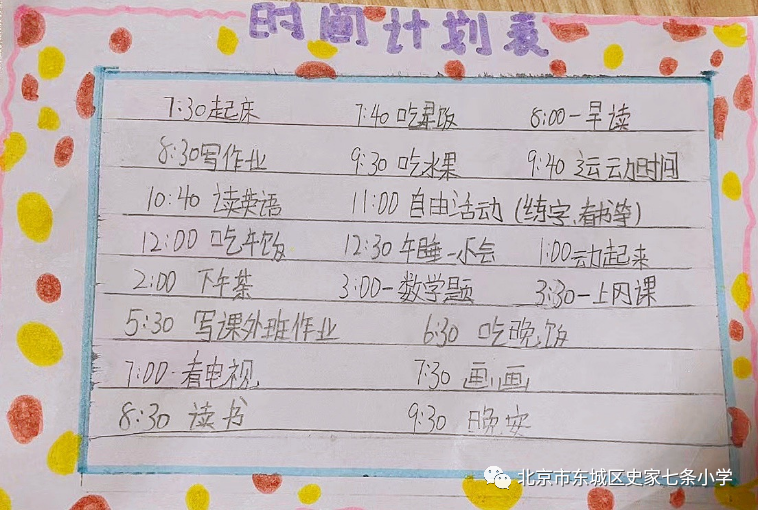 时间计划表
7:30起床 7:40吃早饭 8:00-早读
8:30写作业 9:30吃水果 9:40运动时间
10:40 读英语 11:00 自由活动(练字、看书等)
12:00 吃午饭 12:30 午睡一小会 1:00动起来
2:00 下午茶 3:00-数学题 3:30-上网课
5:30 写课外班作业 6:30 吃晚饭
7:00-看电视 7:30 画画
8:30 读书 9:30 晚安
北京市东城区史家七条小学